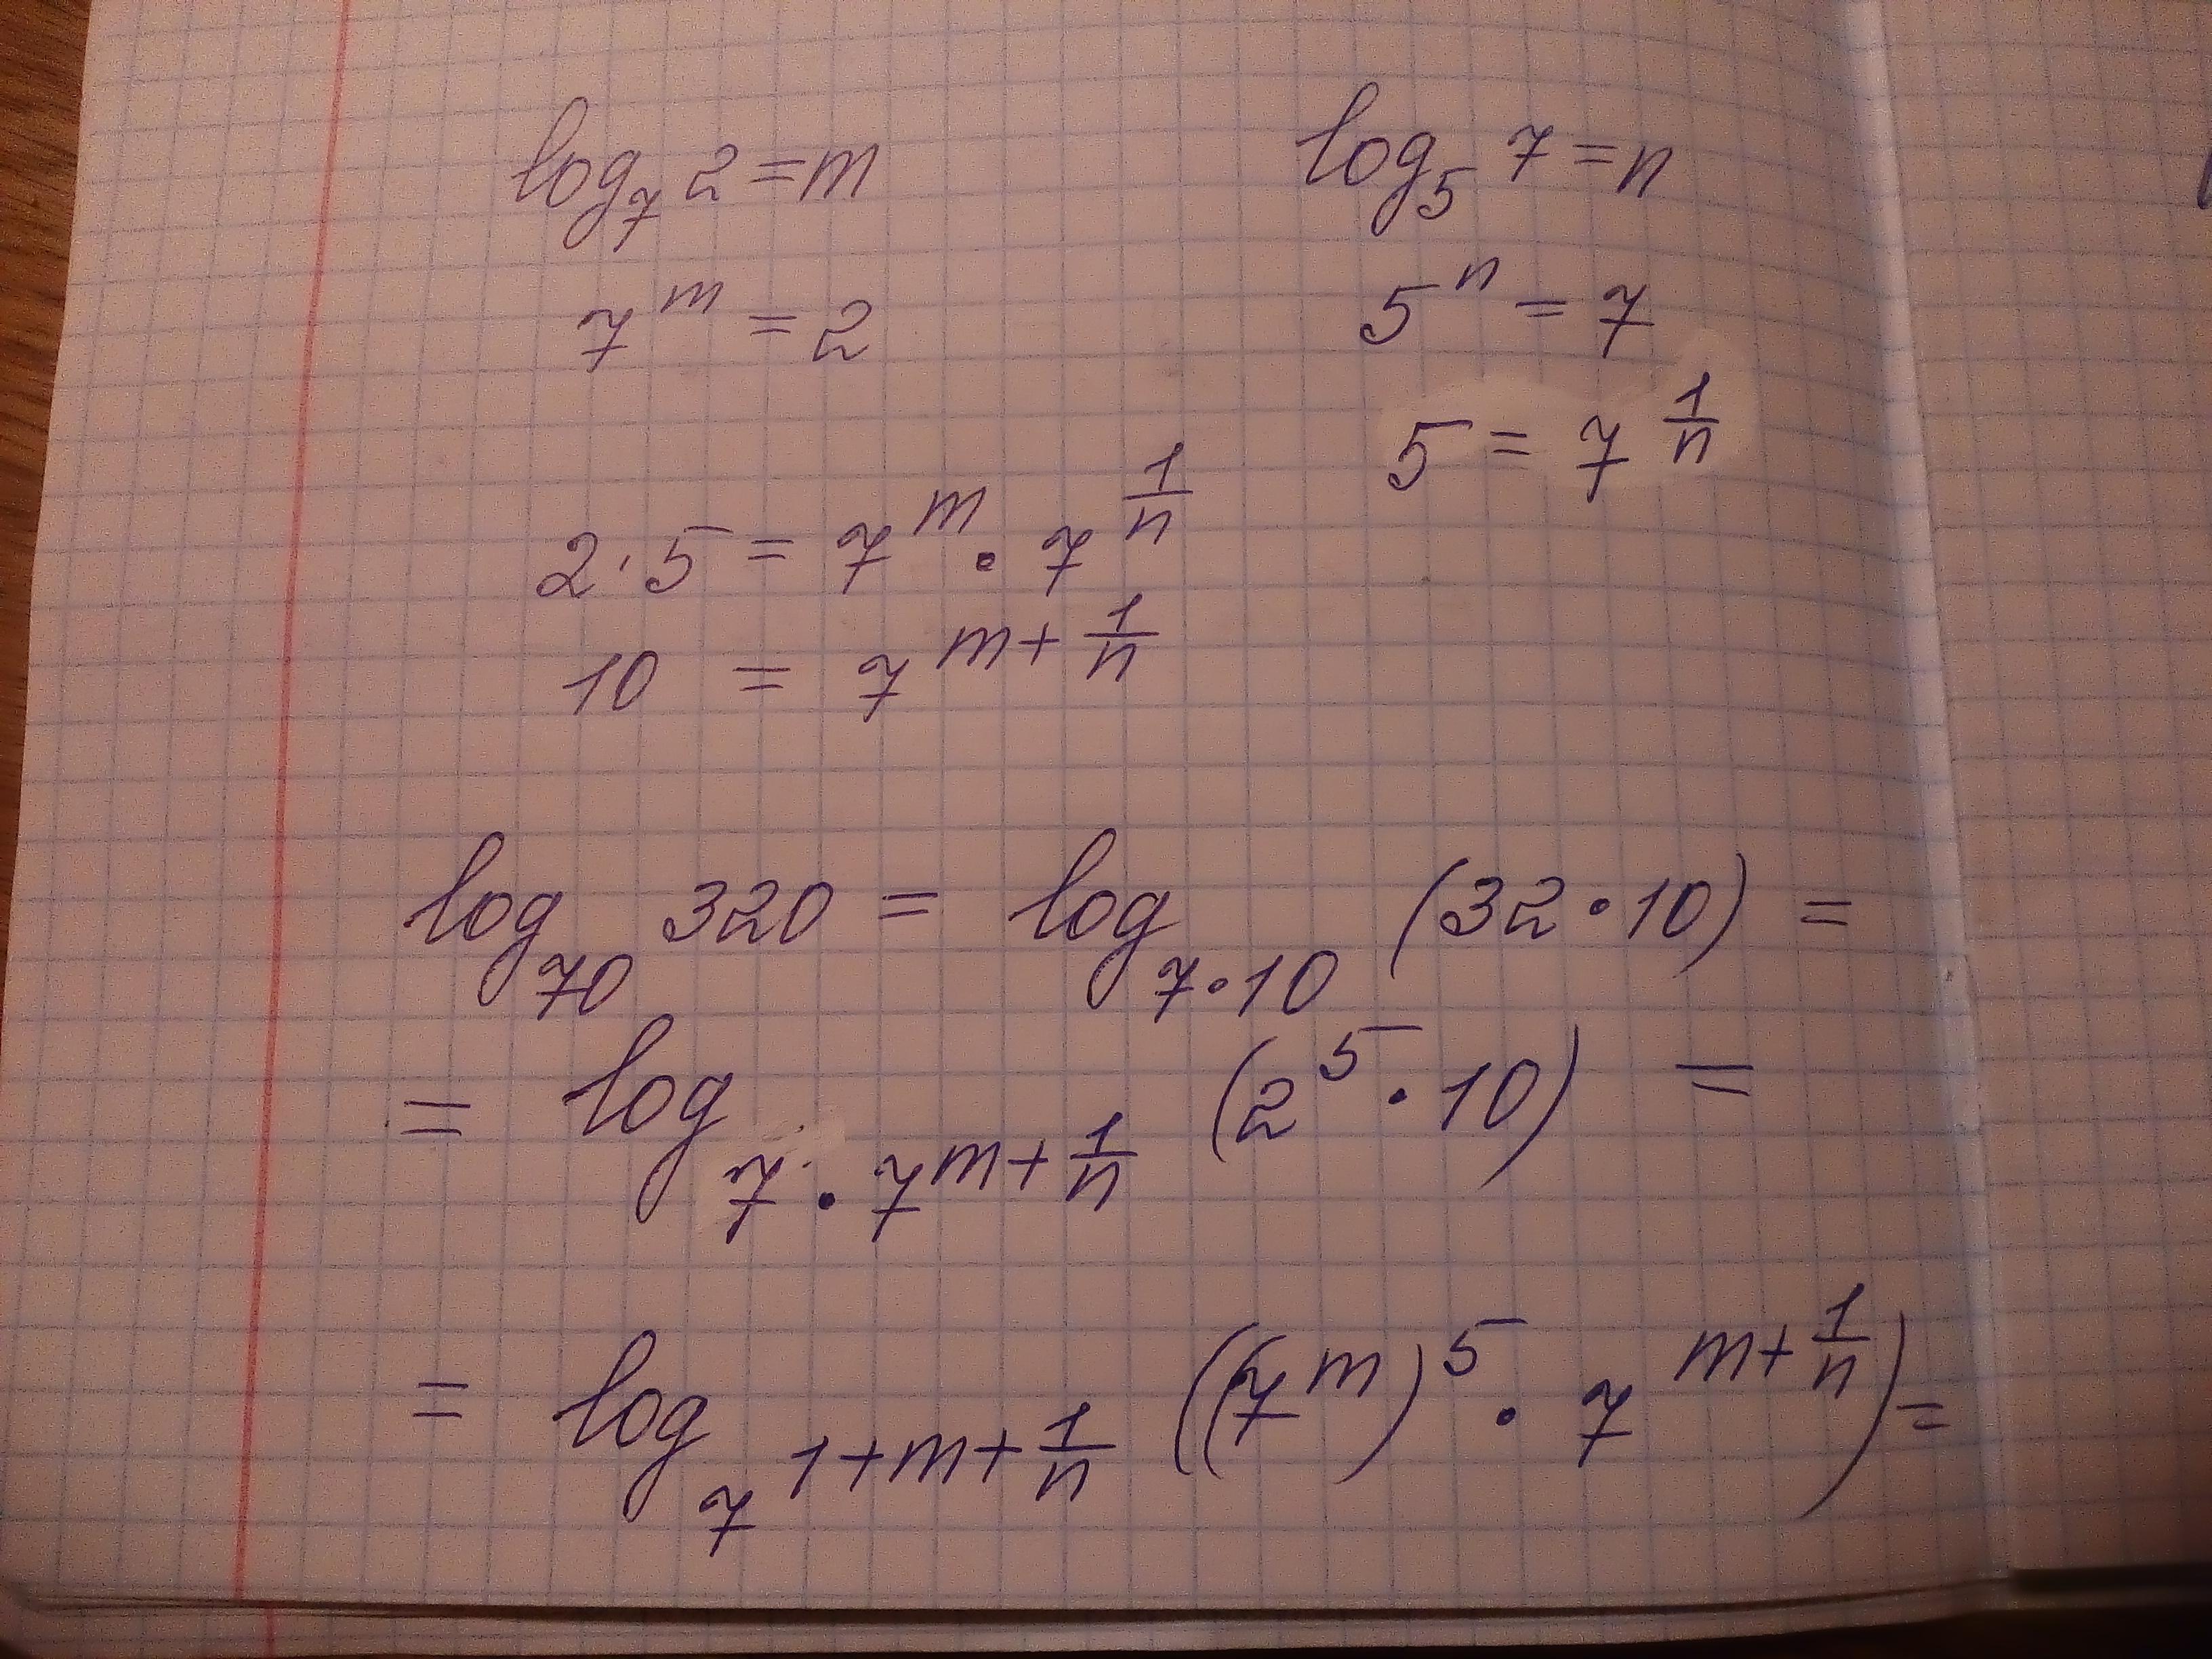 log₇ 2 = m log₅ 7 = n
7^m = 2 5^n = 7
5 = 7^(1/n)
2 · 5 = 7^m · 7^(1/n)
10 = 7^(m + 1/n)
log₇₀ 320 = log_(7·10) (32 · 10) =
= log_(7 · 7^(m + 1/n)) (2^5 · 10) =
= log_(7^(1 + m + 1/n)) ((7^m)^5 · 7^(m + 1/n)) =